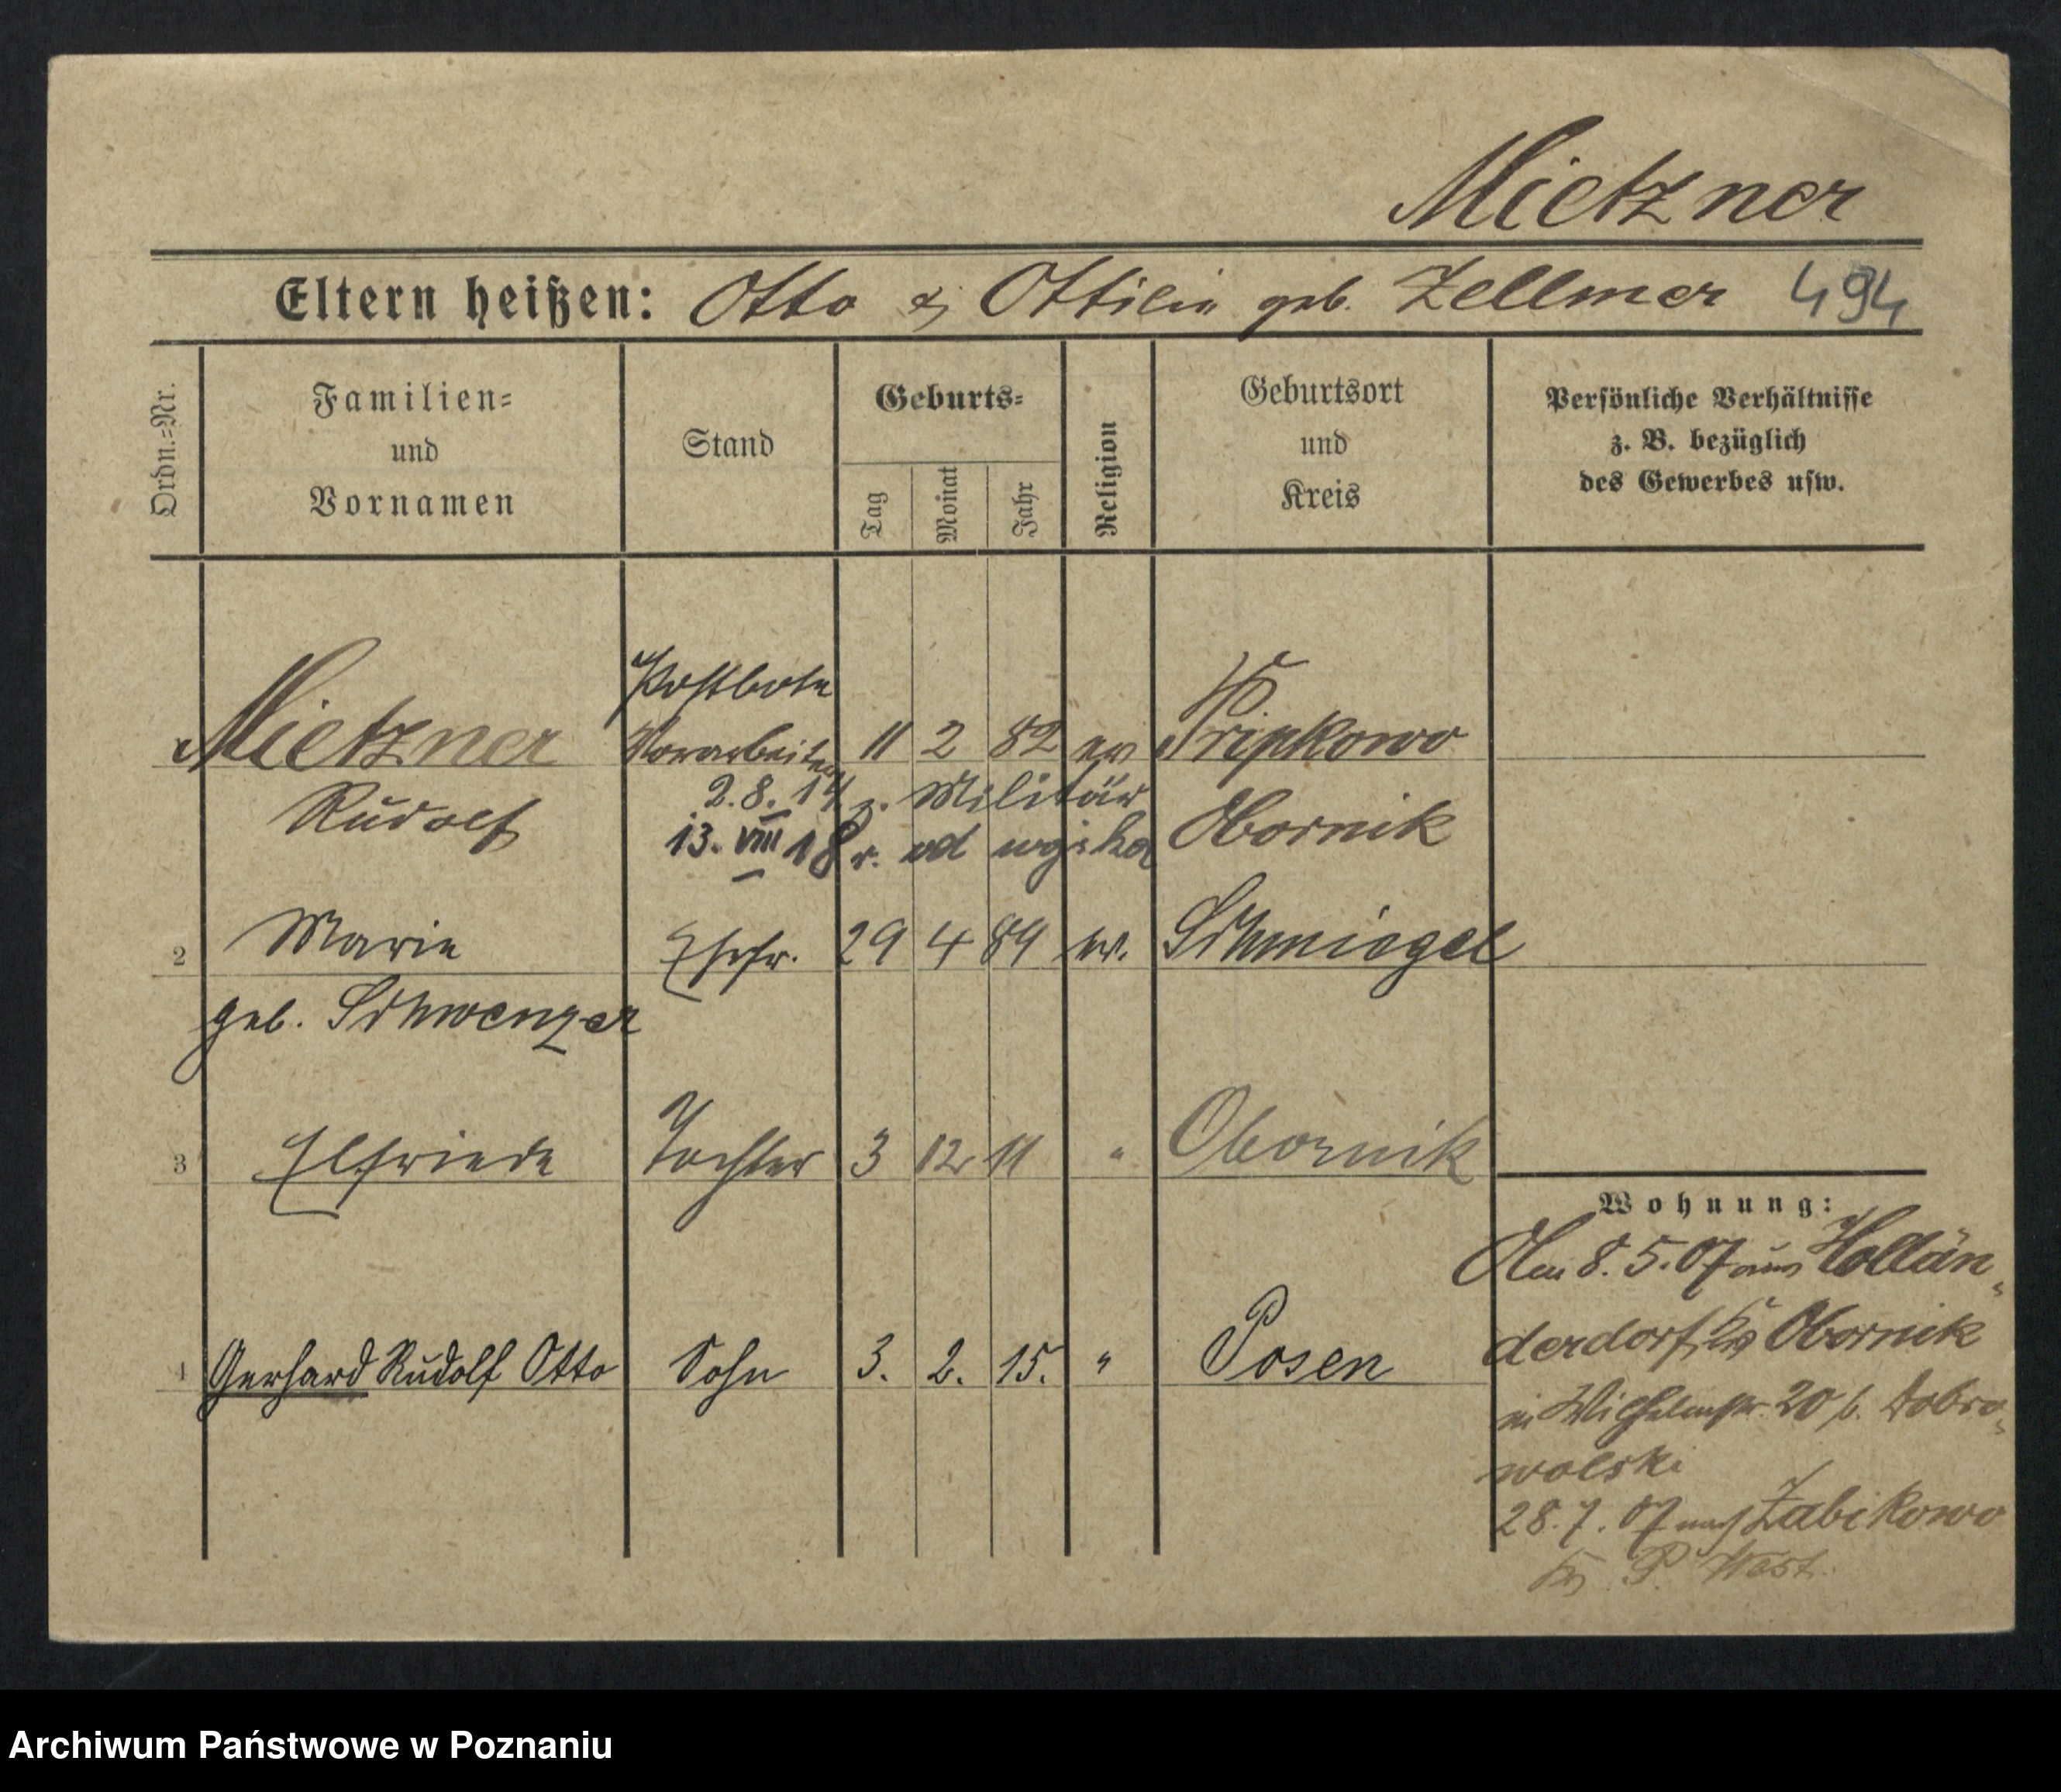 Mietzner
Eltern heißen: Otto & Ottilie geb. Zellmer 494
Ordn.=Nr.
Familien=
und
Vornamen
Stand
Geburts=
Tag
Monat
Jahr
Religion
Geburtsort
und
Kreis
Persönliche Verhältnisse
z. B. bezüglich
des Gewerbes usw.
Postbote
Mietzner Vorarbeiter 11 2 82 ev Pripkowo
2.8.14 z. Militär
Rudolf Obornik
13. VIII 18 r. od wojska
2 Marie Ehefr. 29 4 89 ev. Schmiegel
geb. Schwenzer
3 Elfriede Tochter 3 12 11 " Obornik
Wohnung:
Am 8.5.07 aus Hollän-
derdorf, Krs Obornik
4 Gerhard Rudolf Otto Sohn 3. 2. 15. " Posen
in Wilhelmstr. 20 b. Dobro-
wolski
28.7.07 nach Zabikowo
Krs P. West.
Archiwum Państwowe w Poznaniu